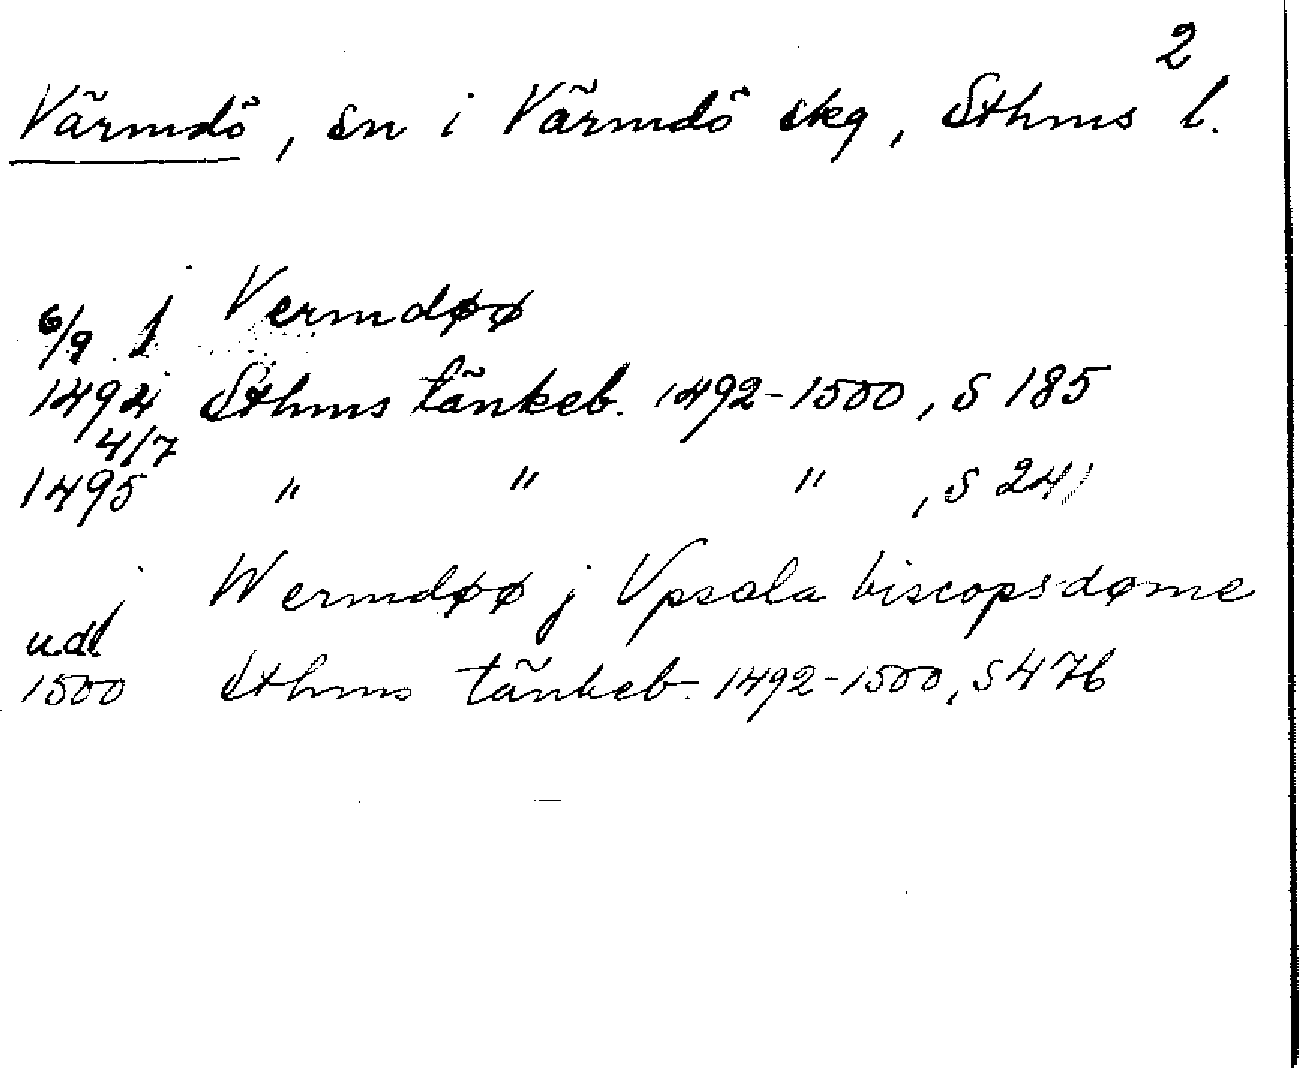 2
Värmdö, sn i Värmdö skg, Sthms l.
j Vermdøø
6/9
1494 Sthms tänkeb. 1492-1500, S 185
4/7
1495 " " " , S 241
j Wermdøø j Vpsala biscopsdøme
udl
1500 Sthms tänkeb. 1492-1500, S 476